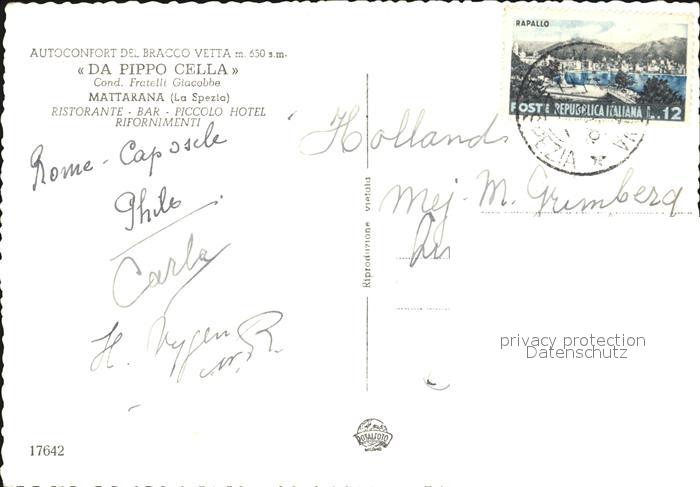 AUTOCONFORT DEL BRACCO VETTA m. 650 s.m.
« DA PIPPO CELLA »
Cond. Fratelli Giacobbe
MATTARANA (La Spezia)
RISTORANTE - BAR - PICCOLO HOTEL
RIFORNIMENTI
Rome - Caposele
Philo
Carla
H.
17642
Riproduzione vietata
ROTALFOTO
MILANO
RAPALLO
POSTE REPUBBLICA ITALIANA L. 12
Holland
Mej. M. Grimberg
privacy protection
Datenschutz